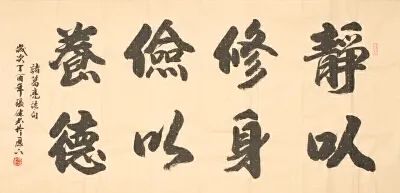 靜以
修身
儉以
養德
諸葛亮法句
歲次丁酉年張建